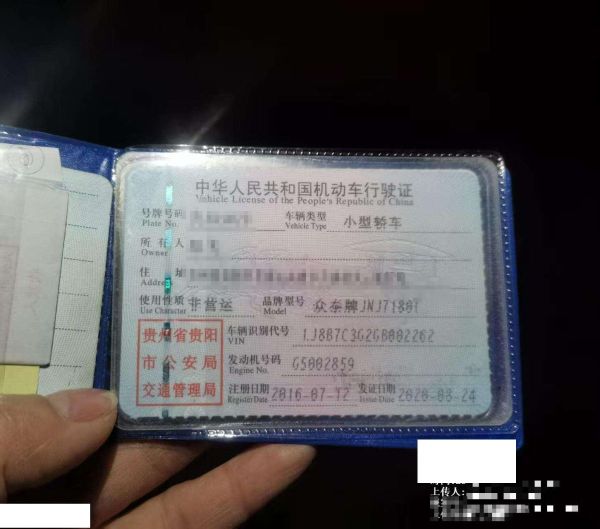 中华人民共和国机动车行驶证
Vehicle License of the People's Republic of China
号牌号码 车辆类型 小型轿车
Plate No. Vehicle Type
所有人
Owner
住 址
Address
使用性质 非营运 品牌型号 众泰牌JNJ7180T
Use Character Model
贵州省贵阳
市公安局
交通管理局
车辆识别代号 LJ8B7C3G2GB002262
VIN
发动机号码 G5002859
Engine No.
注册日期 2016-07-12 发证日期 2020-08-24
Register Date Issue Date
上传人：